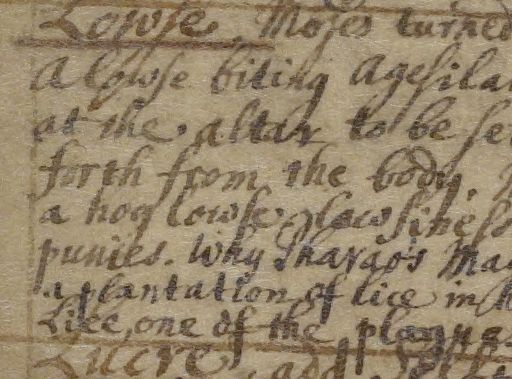 Lowse. Moses turned
A lowse biting Agesila
at the altar to be se
forth from the body.
a hog lowse. lowsiness
punies. Why Pharao's Ma
a plantation of lice in
Lice, one of the plagu
Lucre, add